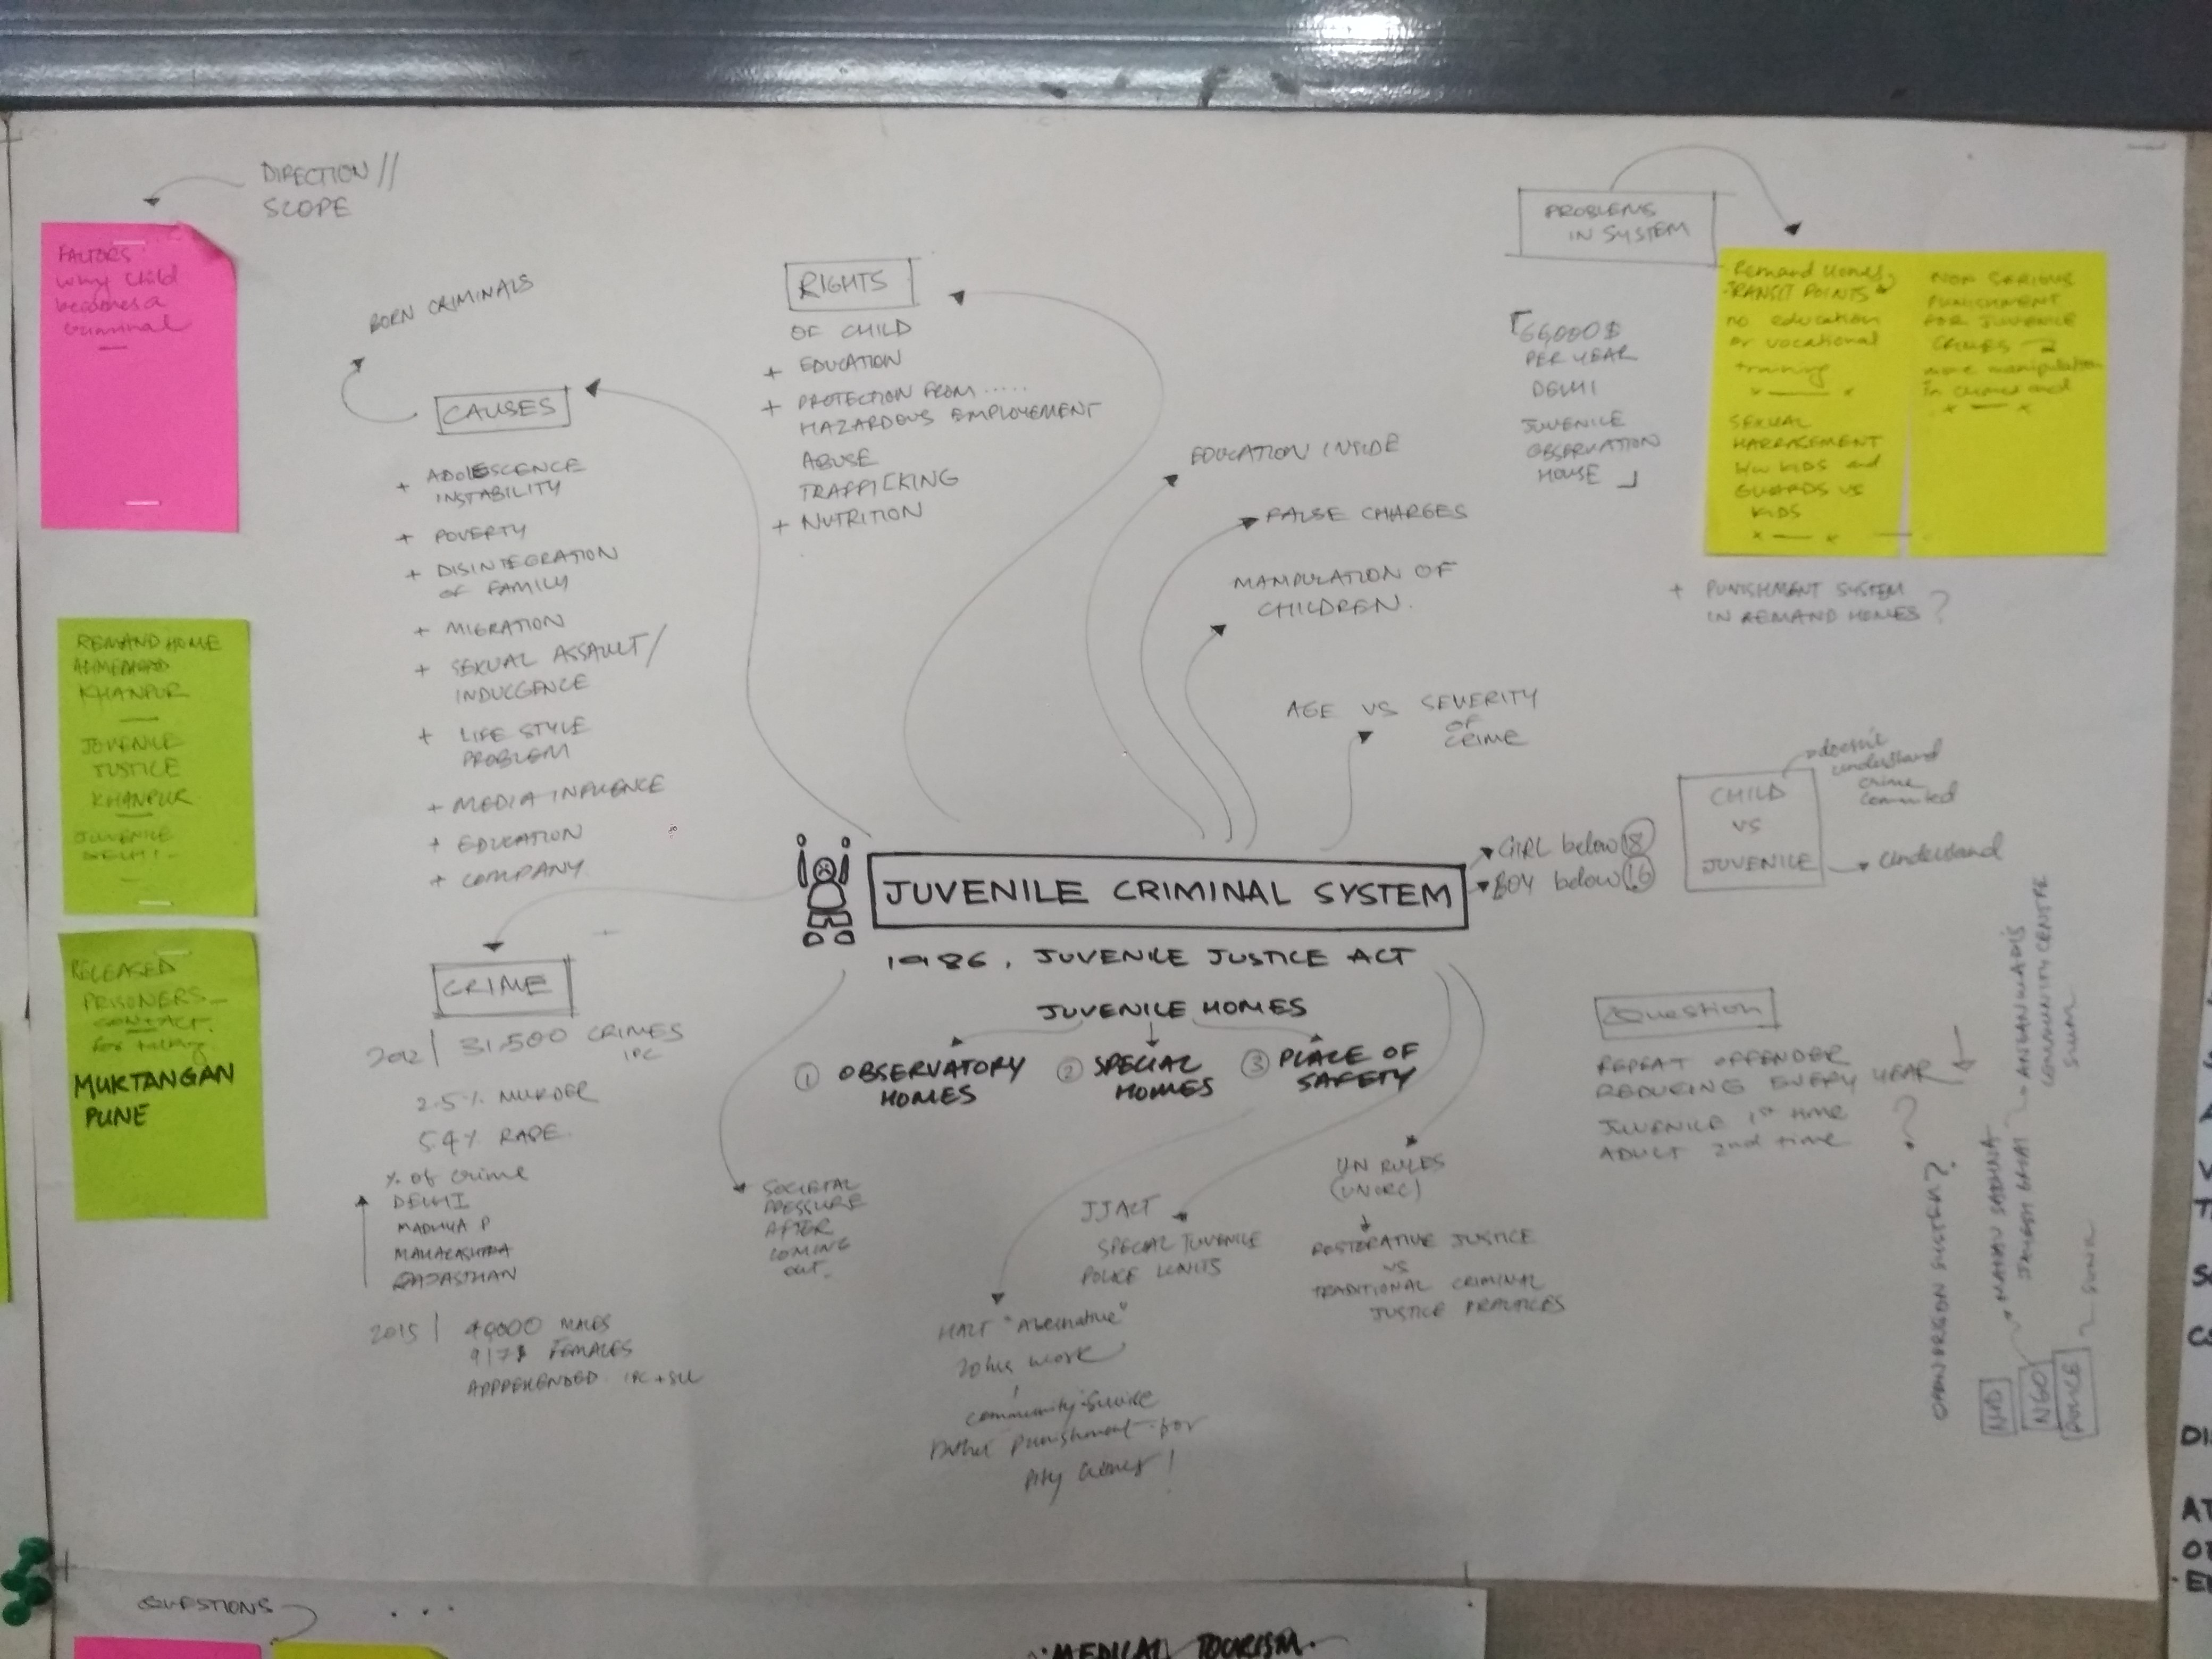 DIRECTION //
SCOPE
FACTORS
why child
becomes a
criminal
BORN CRIMINALS
CAUSES
+ ADOLESCENCE
INSTABILITY
+ POVERTY
+ DISINTEGRATION
OF FAMILY
+ MIGRATION
+ SEXUAL ASSAULT/
INDULGENCE
+ LIFE STYLE
PROBLEM
+ MEDIA INFLUENCE
+ EDUCATION
+ COMPANY
RIGHTS
OF CHILD
+ EDUCATION
+ PROTECTION FROM .....
HAZARDOUS EMPLOYEMENT
ABUSE
TRAFFICKING
+ NUTRITION
EDUCATION INSIDE
FALSE CHARGES
MANIPULATION OF
CHILDREN.
AGE VS SEVERITY
OF
CRIME
PROBLEMS
IN SYSTEM
66,000 $
PER YEAR
DELHI
JUVENILE
OBSERVATION
HOUSE
Remand Homes
TRANSIT POINTS
no education
or vocational
training
x — x
SEXUAL
HARRASEMENT
b/w KIDS and
GUARDS VS
KIDS
x — x
NON SERIOUS
PUNISHMENT
FOR JUVENILE
CRIMES
more manipulation
in
x — x
+ PUNISHMENT SYSTEM
IN REMAND HOMES ?
REMAND HOME
AHMEDABAD
KHANPUR
JUVENILE
JUSTICE
KHANPUR
JUVENILE
DELHI
RELEASED
PRISONERS
CONTACT
for talking
MUKTANGAN
PUNE
JUVENILE CRIMINAL SYSTEM
GIRL below 18
BOY below 16
1986, JUVENILE JUSTICE ACT
JUVENILE HOMES
1 OBSERVATORY
HOMES
2 SPECIAL
HOMES
3 PLACE OF
SAFETY
CHILD
VS
JUVENILE
doesn't
understand
crime
commited
understand
CRIME
2012 | 31,500 CRIMES
IPC
2.5% MURDER
5.4% RAPE
% of crime
DELHI
MADHYA P
MAHARASHTRA
RAJASTHAN
2015 | 40000 MALES
FEMALES
APPREHENDED IPC + SLL
SOCIETAL
PRESSURE
AFTER
COMING
OUT.
JJ ACT
SPECIAL JUVENILE
POLICE UNITS
UN RULES
(UNCRC)
RESTORATIVE JUSTICE
VS
TRADITIONAL CRIMINAL
JUSTICE PRACTICES
HALT "Alternative"
20 hrs work
community service
Rather punishment for
petty crimes!
Question
REPEAT OFFENDER
REDUCING EVERY YEAR
JUVENILE 1st time
ADULT 2nd time
?
OPEN PRISON SYSTEM?
MANAV SADHNA
ANGANWADIS
COMMUNITY CENTRE
SLUM
NID
NGO
POLICE
QUESTIONS
. . .
MEDICAL TOURISM.